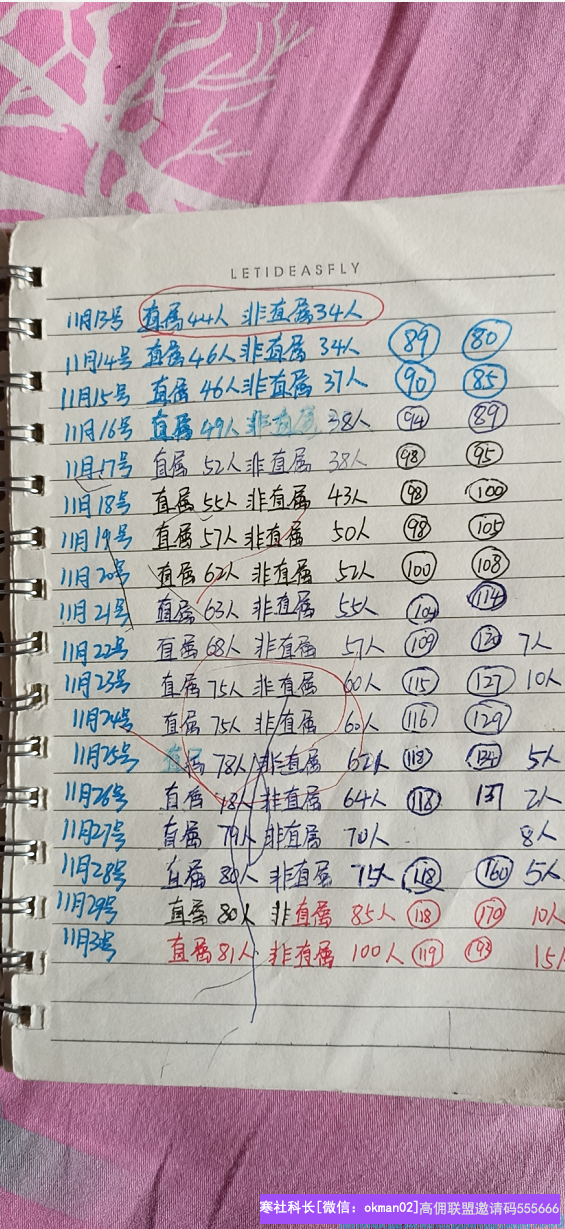 LETIDEASFLY
11月13号 直属44人 非直属34人
11月14号 直属46人 非直属 34人 89 80
11月15号 直属 46人 非直属 37人 90 85
11月16号 直属 49人 非直属 38人 94 89
11月17号 直属 52人 非直属 38人 98 95
11月18号 直属 55人 非直属 43人 98 100
11月19号 直属 57人 非直属 50人 98 105
11月20号 直属 62人 非直属 52人 100 108
11月21号 直属 63人 非直属 55人 104 114
11月22号 直属 68人 非直属 57人 109 120 7人
11月23号 直属 75人 非直属 60人 115 127 10人
11月24号 直属 75人 非直属 60人 116 129
11月25号 直属 78人 非直属 62人 118 134 5人
11月26号 直属 78人 非直属 64人 118 137 2人
11月27号 直属 79人 非直属 70人 8人
11月28号 直属 80人 非直属 75人 118 160 5人
11月29号 直属 80人 非直属 85人 118 170 10人
11月3号 直属 81人 非直属 100人 119 193 15人
寒社科长[微信：okman02]高佣联盟邀请码555666